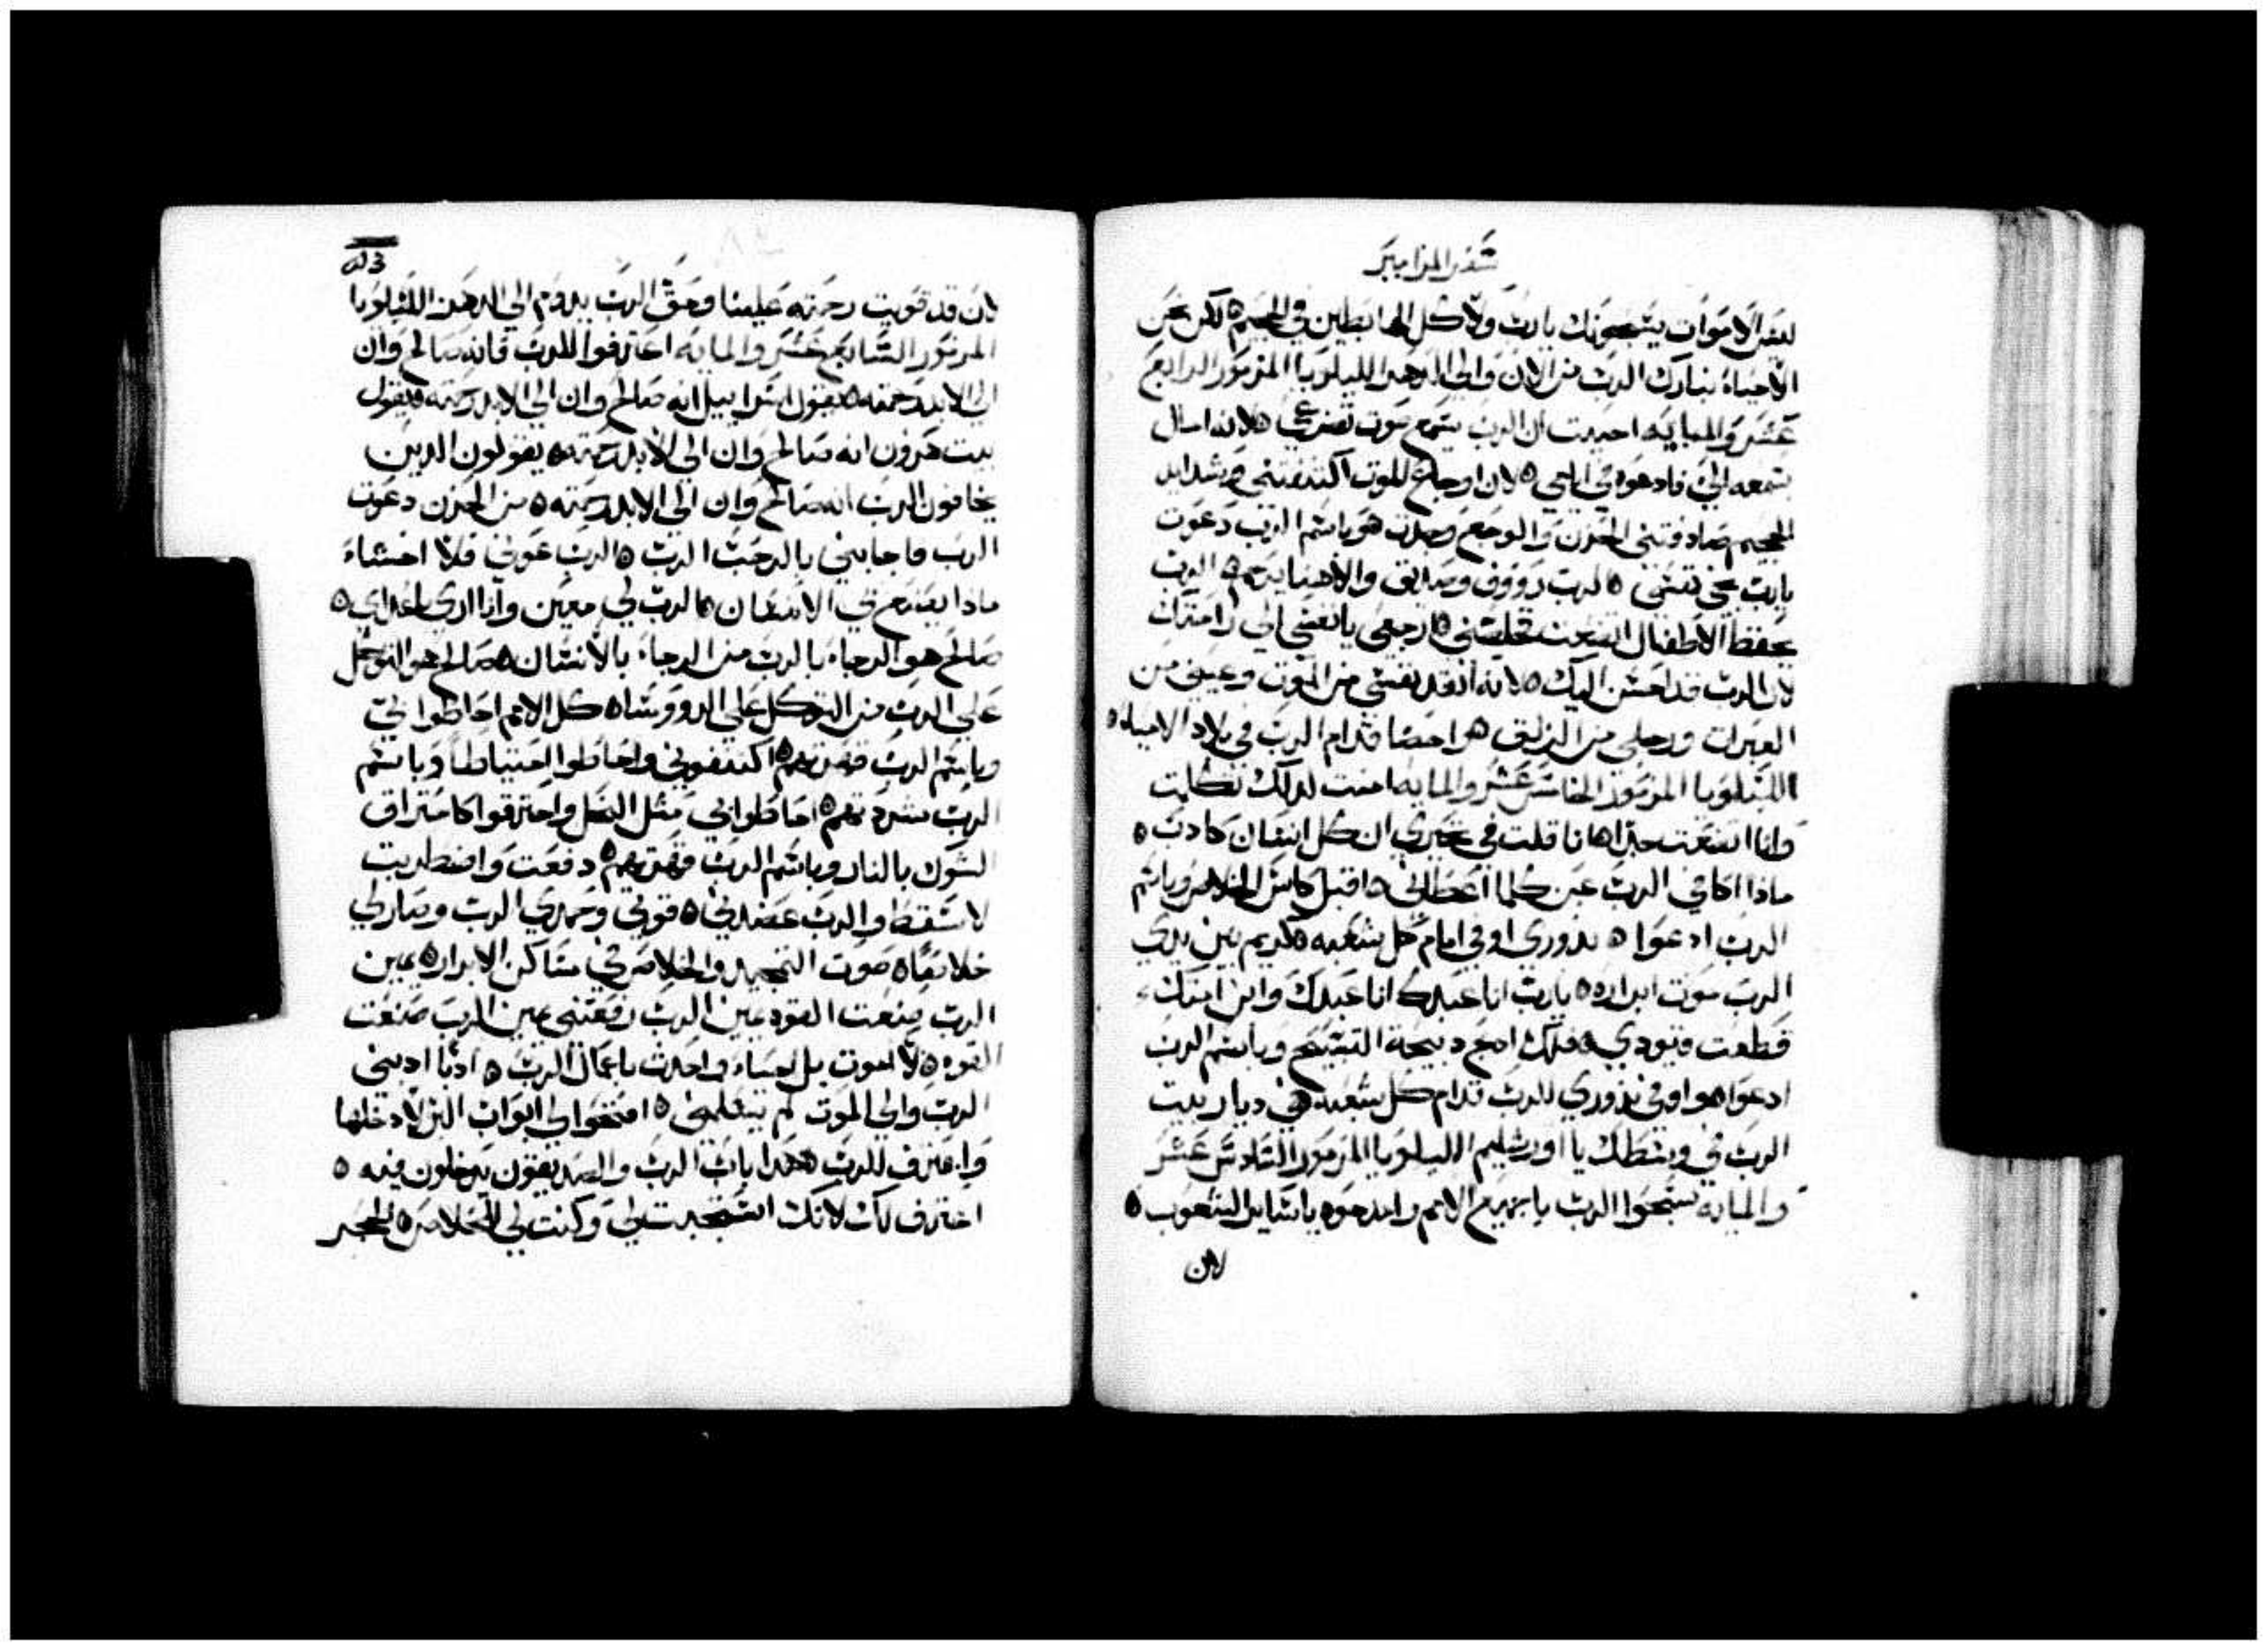 سفر المزامير
ليس الاموات يسبحونك يارب ولا كل الهابطين في الجحيم ه لكن نحن
الاحياء نبارك الرب من الان والي الدهر الليلويا المزمور الرابع
عشر والمايه احببت ان الرب يسمع صوت تضرعي ه لانه امال
سمعه الي فادعوه في ايامي ه لان اوجاع الموت اكتنفتني وشدايد
الجحيم صادفتني الحزن والوجع وجدت ه وباسم الرب دعوت
يارب نجي نفسي ه الرب رووف وصديق والاهنا يرحم ه الرب
يحفظ الاطفال اتضعت فخلصني ه ارجعي يا نفسي الي راحتك
لان الرب قد احسن اليك ه لانه انقد نفسي من الموت وعيني من
العبرات ورجلي من الزلق ه ارضا قدام الرب في بلاد الاحياء ه
الليلويا المزمور الخامس عشر والمايه امنت لدلك تكلمت
وانا اتضعت جدا ه انا قلت في تحيري ان كل انسان كادب ه
مادا اكافي الرب عن كلما اعطاني ه اقبل كاس الخلاص وباسم
الرب ادعوا ه ندوري اوفي امام كل شعبه ه كريم بين يدي
الرب موت ابراره ه يارب انا عبدك انا عبدك وابن امتك
قطعت قيودي ه فلك ادبح دبيحة التسبيح وباسم الرب
ادعوا ه واوفي ندوري للرب قدام كل شعبه ه في ديار بيت
الرب في وسطك يا اورشليم الليلويا المزمور السادس عشر
والمايه سبحوا الرب يا جميع الامم وامدحوه يا ساير الشعوب ه
لان
لان قد قويت رحمته علينا وحق الرب يدوم الي الدهر الليلويا
المزمور السابع عشر والمايه اعترفوا للرب فانه صالح وان
الي الابد رحمته ه يقول اسراييل انه صالح وان الي الابد رحمته ه يقول
بيت هرون انه صالح وان الي الابد رحمته ه يقولون الدين
يخافون الرب انه صالح وان الي الابد رحمته ه من الحزن دعوت
الرب فاجابني بالرحب الرب ه الرب عوني فلا اخشاء
مادا يصنع في الانسان ه الرب لي معين وانا اري اعداي ه
صالح هو الرجاء بالرب من الرجاء بالانسان ه صالح هو التوكل
علي الرب من التوكل علي الروساء ه كل الامم احاطوا بي
وباسم الرب قهرتهم ه اكتنفوني واحاطوا احتياطا وباسم
الرب شردتهم ه احاطوا بي مثل النحل واحترقوا كاحتراق
الشوك بالنار وباسم الرب قهرتهم ه دفعت واضطربت
لاسقط والرب عضدني ه قوتي وحمدي الرب وصار لي
خلاصا ه صوت التمجيد والخلاص في مساكن الابرار ه يمين
الرب صنعت القوه يمين الرب رفعتني يمين الرب صنعت
القوه ه لا اموت بل احياء واحدث باعمال الرب ه ادبا ادبني
الرب والي الموت لم يسلمني ه افتحوا لي ابواب البر لادخلها
واعترف للرب ه هدا باب الرب والصديقون يدخلون فيه ه
اعترف لك لانك استجبت لي وكنت لي مخلاص ه الحجر